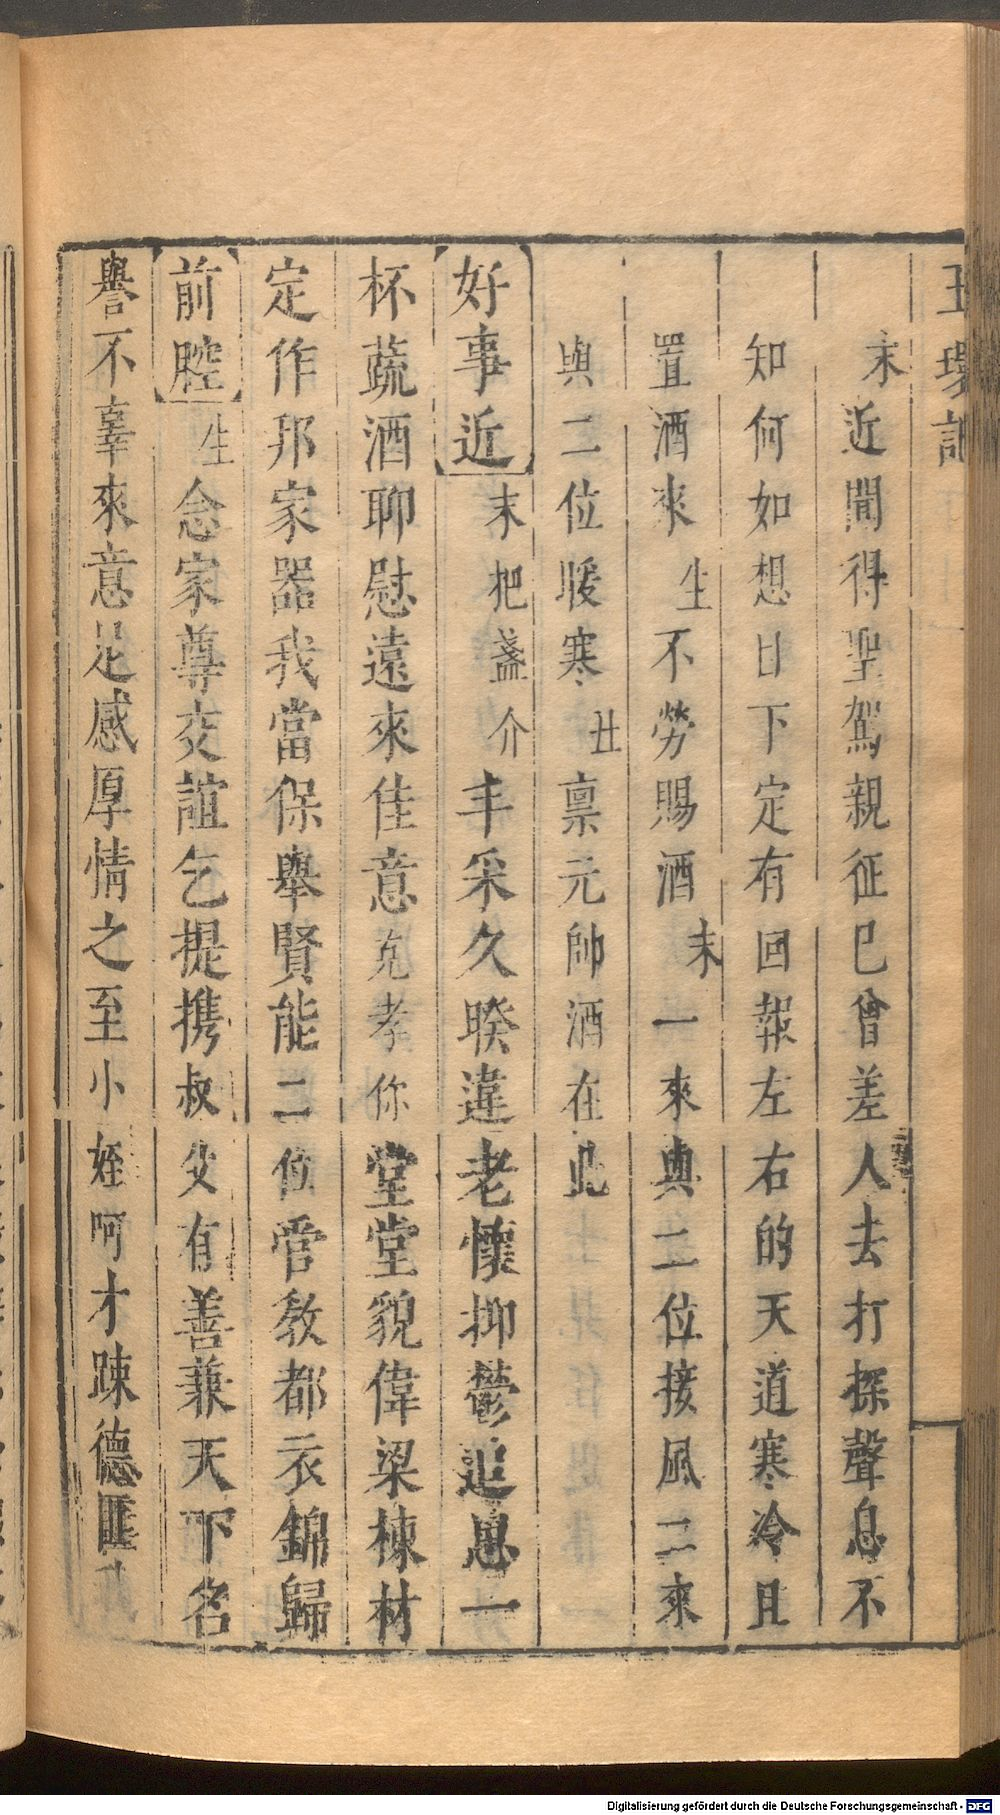 玉環記
末近聞得聖駕親征已曾差人去打探聲息不
知何如想日下定有回報左右的天道寒冷且
置酒來生不勞賜酒末一來與二位接風二來
與二位煖寒丑稟元帥酒在此
好事近末把盞介丰采久暌違老懷抑鬱追思一
杯蔬酒聊慰遠來佳意克孝你堂堂貌偉梁棟材
定作邦家器我當保舉賢能二位管教都衣錦歸
前腔生念家尊交誼乞提携叔父有善兼天下名
譽不辜來意足感厚情之至小姪呵才踈德匪
Digitalisierung gefördert durch die Deutsche Forschungsgemeinschaft - DFG